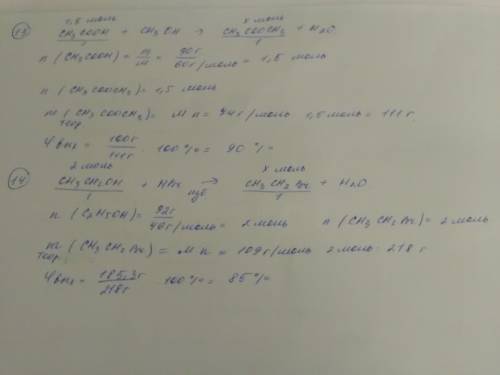 13 1,5 моль х моль
CH3COOH + CH3OH → CH3COOCH3 + H2O
1 1
n (CH3COOH) = m/M = 90г/60г/моль = 1,5 моль
n (CH3COOCH3) = 1,5 моль
m теор. (CH3COOCH3) = M n = 74г/моль 1,5 моль = 111 г.
φвых = 100г/111г · 100% = 90%
2 моль х моль
14 CH3CH2OH + HBr → CH3CH2Br + H2O
1 1
n (C2H5OH) = 92г/46г/моль = 2 моль n (CH3CH2Br) = 2 моль
m теор. (CH3CH2Br) = M n = 109г/моль 2 моль = 218 г
φвых = 185,3г/218г 100% = 85%